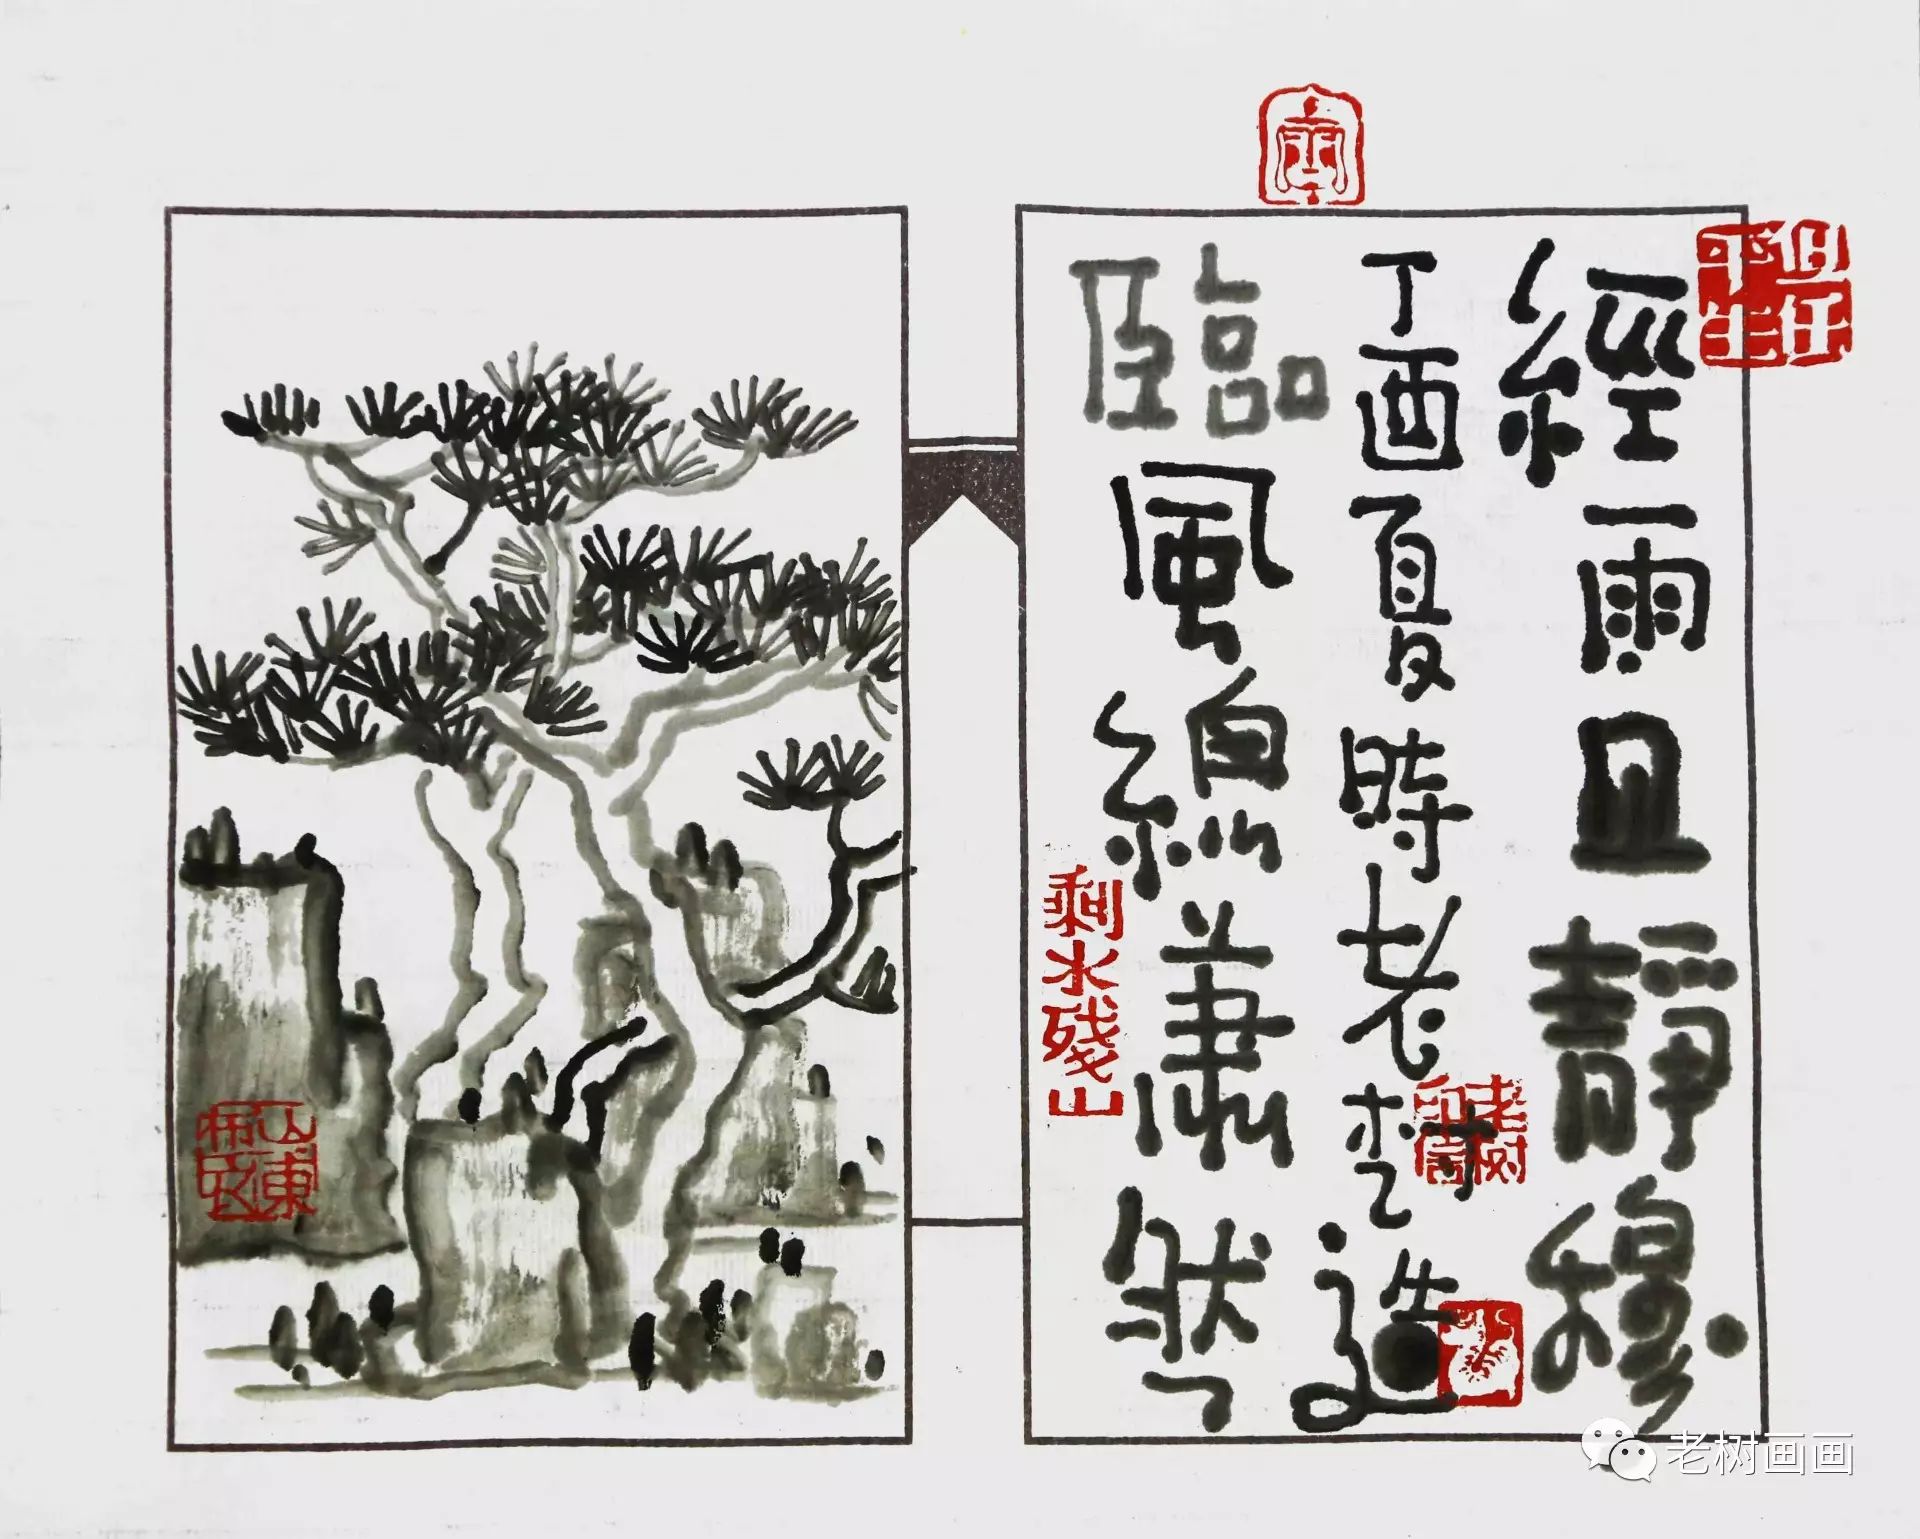 且任平生
經雨且靜穆
丁酉夏時老樹造
臨風總蕭然
剩水殘山
老树画画